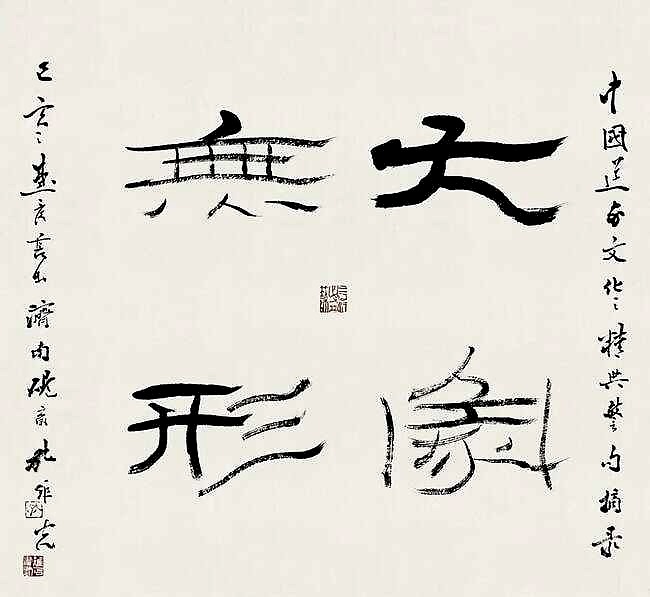 中國道家文化之精典警句摘录
大象
無形
己亥之書於濟南孔維克